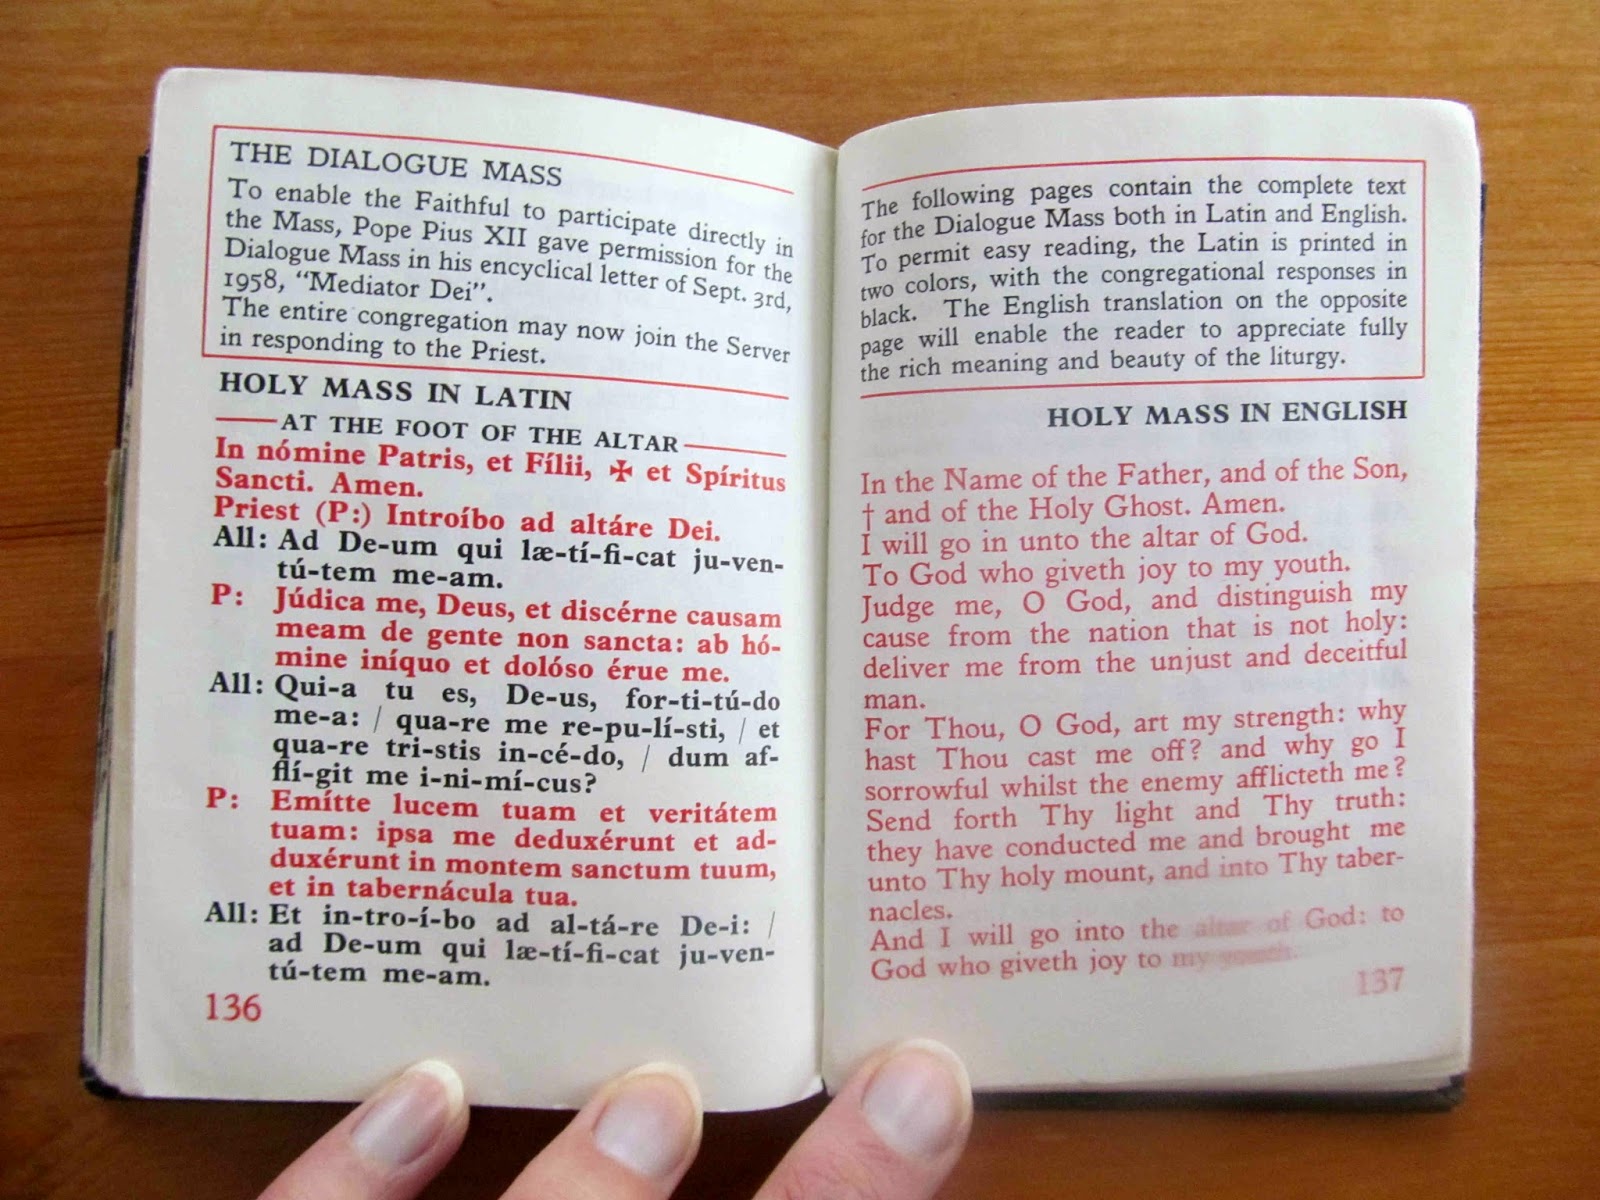 THE DIALOGUE MASS
To enable the Faithful to participate directly in
the Mass, Pope Pius XII gave permission for the
Dialogue Mass in his encyclical letter of Sept. 3rd,
1958, “Mediator Dei”.
The entire congregation may now join the Server
in responding to the Priest.
HOLY MASS IN LATIN
AT THE FOOT OF THE ALTAR
In nómine Patris, et Fílii, ✠ et Spíritus
Sancti. Amen.
Priest (P:) Introíbo ad altáre Dei.
All: Ad De-um qui læ-tí-fi-cat ju-ven-
tú-tem me-am.
P: Júdica me, Deus, et discérne causam
meam de gente non sancta: ab hó-
mine iníquo et dolóso érue me.
All: Qui-a tu es, De-us, for-ti-tú-do
me-a: / qua-re me re-pu-lí-sti, / et
qua-re tri-stis in-cé-do, / dum af-
flí-git me i-ni-mí-cus?
P: Emítte lucem tuam et veritátem
tuam: ipsa me deduxérunt et ad-
duxérunt in montem sanctum tuum,
et in tabernácula tua.
All: Et in-tro-í-bo ad al-tá-re De-i: /
ad De-um qui læ-tí-fi-cat ju-ven-
tú-tem me-am.
136
The following pages contain the complete text
for the Dialogue Mass both in Latin and English.
To permit easy reading, the Latin is printed in
two colors, with the congregational responses in
black. The English translation on the opposite
page will enable the reader to appreciate fully
the rich meaning and beauty of the liturgy.
HOLY MASS IN ENGLISH
In the Name of the Father, and of the Son,
† and of the Holy Ghost. Amen.
I will go in unto the altar of God.
To God who giveth joy to my youth.
Judge me, O God, and distinguish my
cause from the nation that is not holy:
deliver me from the unjust and deceitful
man.
For Thou, O God, art my strength: why
hast Thou cast me off? and why go I
sorrowful whilst the enemy afflicteth me?
Send forth Thy light and Thy truth:
they have conducted me and brought me
unto Thy holy mount, and into Thy taber-
nacles.
And I will go into the altar of God: to
God who giveth joy to my youth.
137